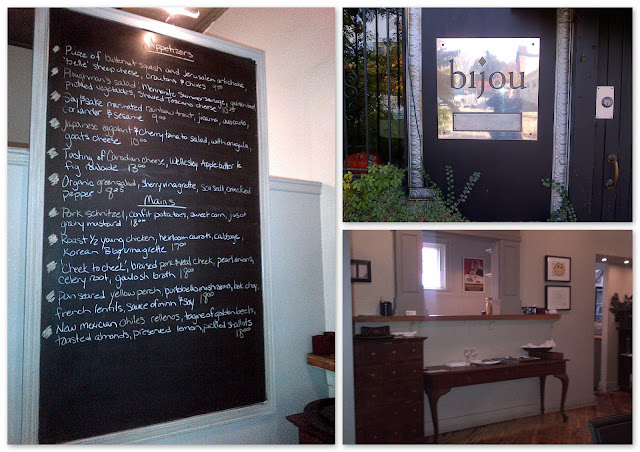 Appetizers
Puree of butternut squash and Jerusalem artichoke,
'belle' sheep cheese, croutons & chives
Ploughman's salad, Mennonite summer sausage, golden beet,
pickled vegetables, shaved Toscano cheese
Soy & sake marinated rainbow trout, jicama, avocado,
coriander & sesame 9.00
Japanese eggplant & cherry tomato salad, with arugula,
goats cheese 10.00
Tasting of Canadian cheese, Wellesley Apple butter &
fig 13.00
Organic green salad, sherry vinaigrette, sea salt, cracked
pepper
Mains
Pork schnitzel, confit potatoes, sweet corn, jus of
grainy mustard 18.00
Roast 1/2 young chicken, heirloom carrots, cabbage,
Korean BBQ vinaigrette 17.00
'Cheek to cheek', braised pork & veal cheek, pearl onions,
celery root, goulash broth 18.00
Pan seared yellow perch, portobello mushrooms, bok choy,
french lentils, sauce of mirin & soy 18.00
New mexican chiles rellenos, tagine of golden beets,
toasted almonds, preserved lemon, pickled shallots
18.00
bijou